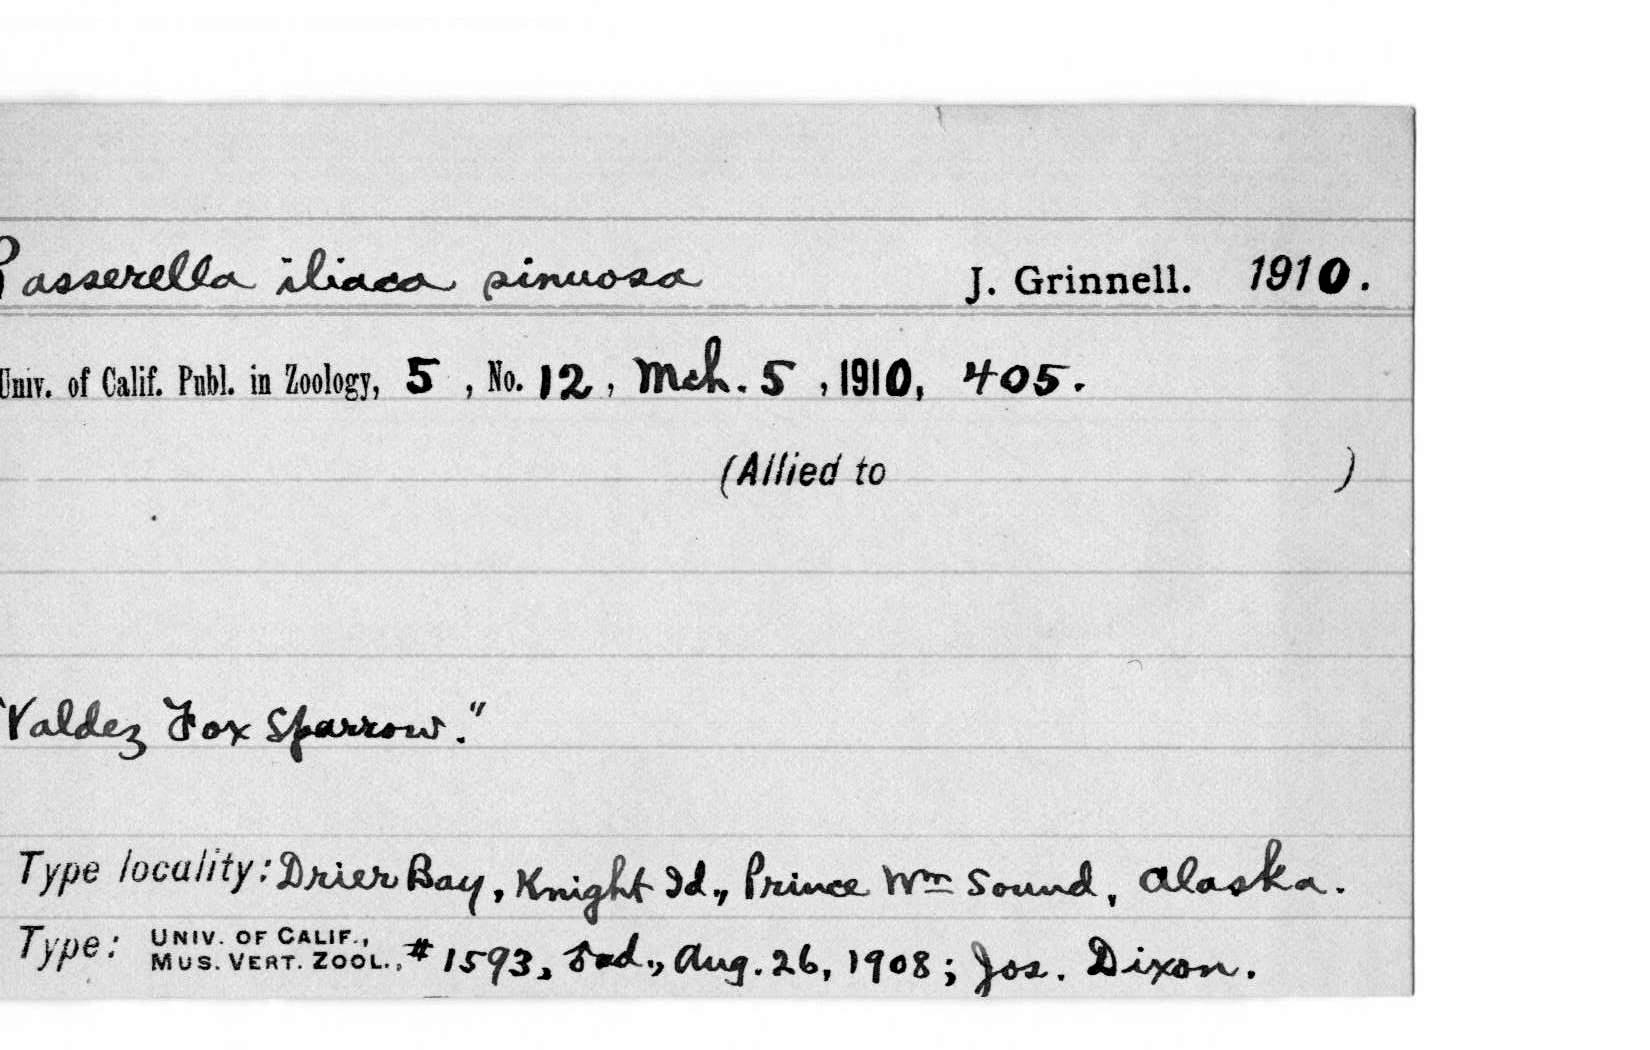 Passerella iliaca sinuosa J. Grinnell. 1910.
Univ. of Calif. Publ. in Zoology, 5, No. 12, Mch. 5, 1910, 405.
(Allied to )
"Valdez Fox Sparrow."
Type locality: Drier Bay, Knight Id., Prince Wm Sound, Alaska.
Type: UNIV. OF CALIF.,
MUS. VERT. ZOOL., # 1593, ad., Aug. 26, 1908; Jos. Dixon.